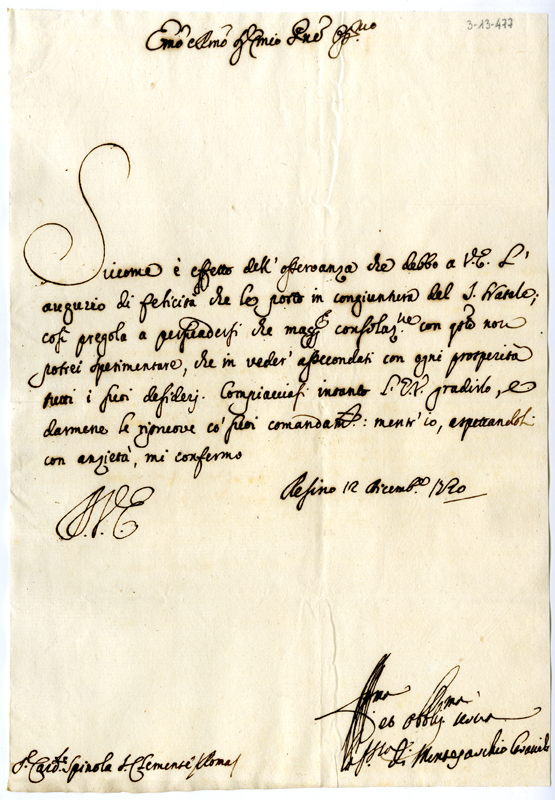 3-13-477
Emo e Rmo Sig mio Pne
Siccome è effetto dell' osservanza che debbo a V.E. l'
augurio di felicità che le porto in congiuntura del S. Natale;
così pregola a persuadersi che magg.e consolaz.ne con qsto non
potrei sperimentare, che in veder' assecondati con ogni prosperità
tutti i suoi desiderj. Compiacciasi intanto L'E.V. gradirlo, e
darmene le riprove co' suoi comandam.ti: mentr' io, aspettandoli
con anzietà, mi confermo
Resino 12 Dicemb.e 1720
D.V.E.
Sr Card.le Spinola S. Clemente Roma